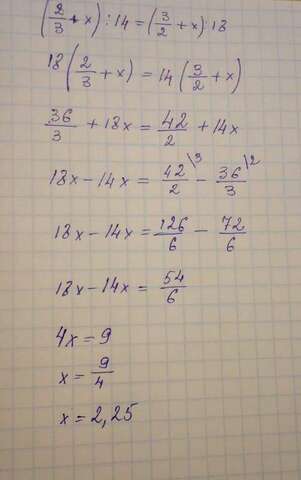 (2/3 + x) : 14 = (3/2 + x) : 18
18(2/3 + x) = 14(3/2 + x)
36/3 + 18x = 42/2 + 14x
18x - 14x = 42/2 \3 - 36/3 \2
18x - 14x = 126/6 - 72/6
18x - 14x = 54/6
4x = 9
x = 9/4
x = 2,25